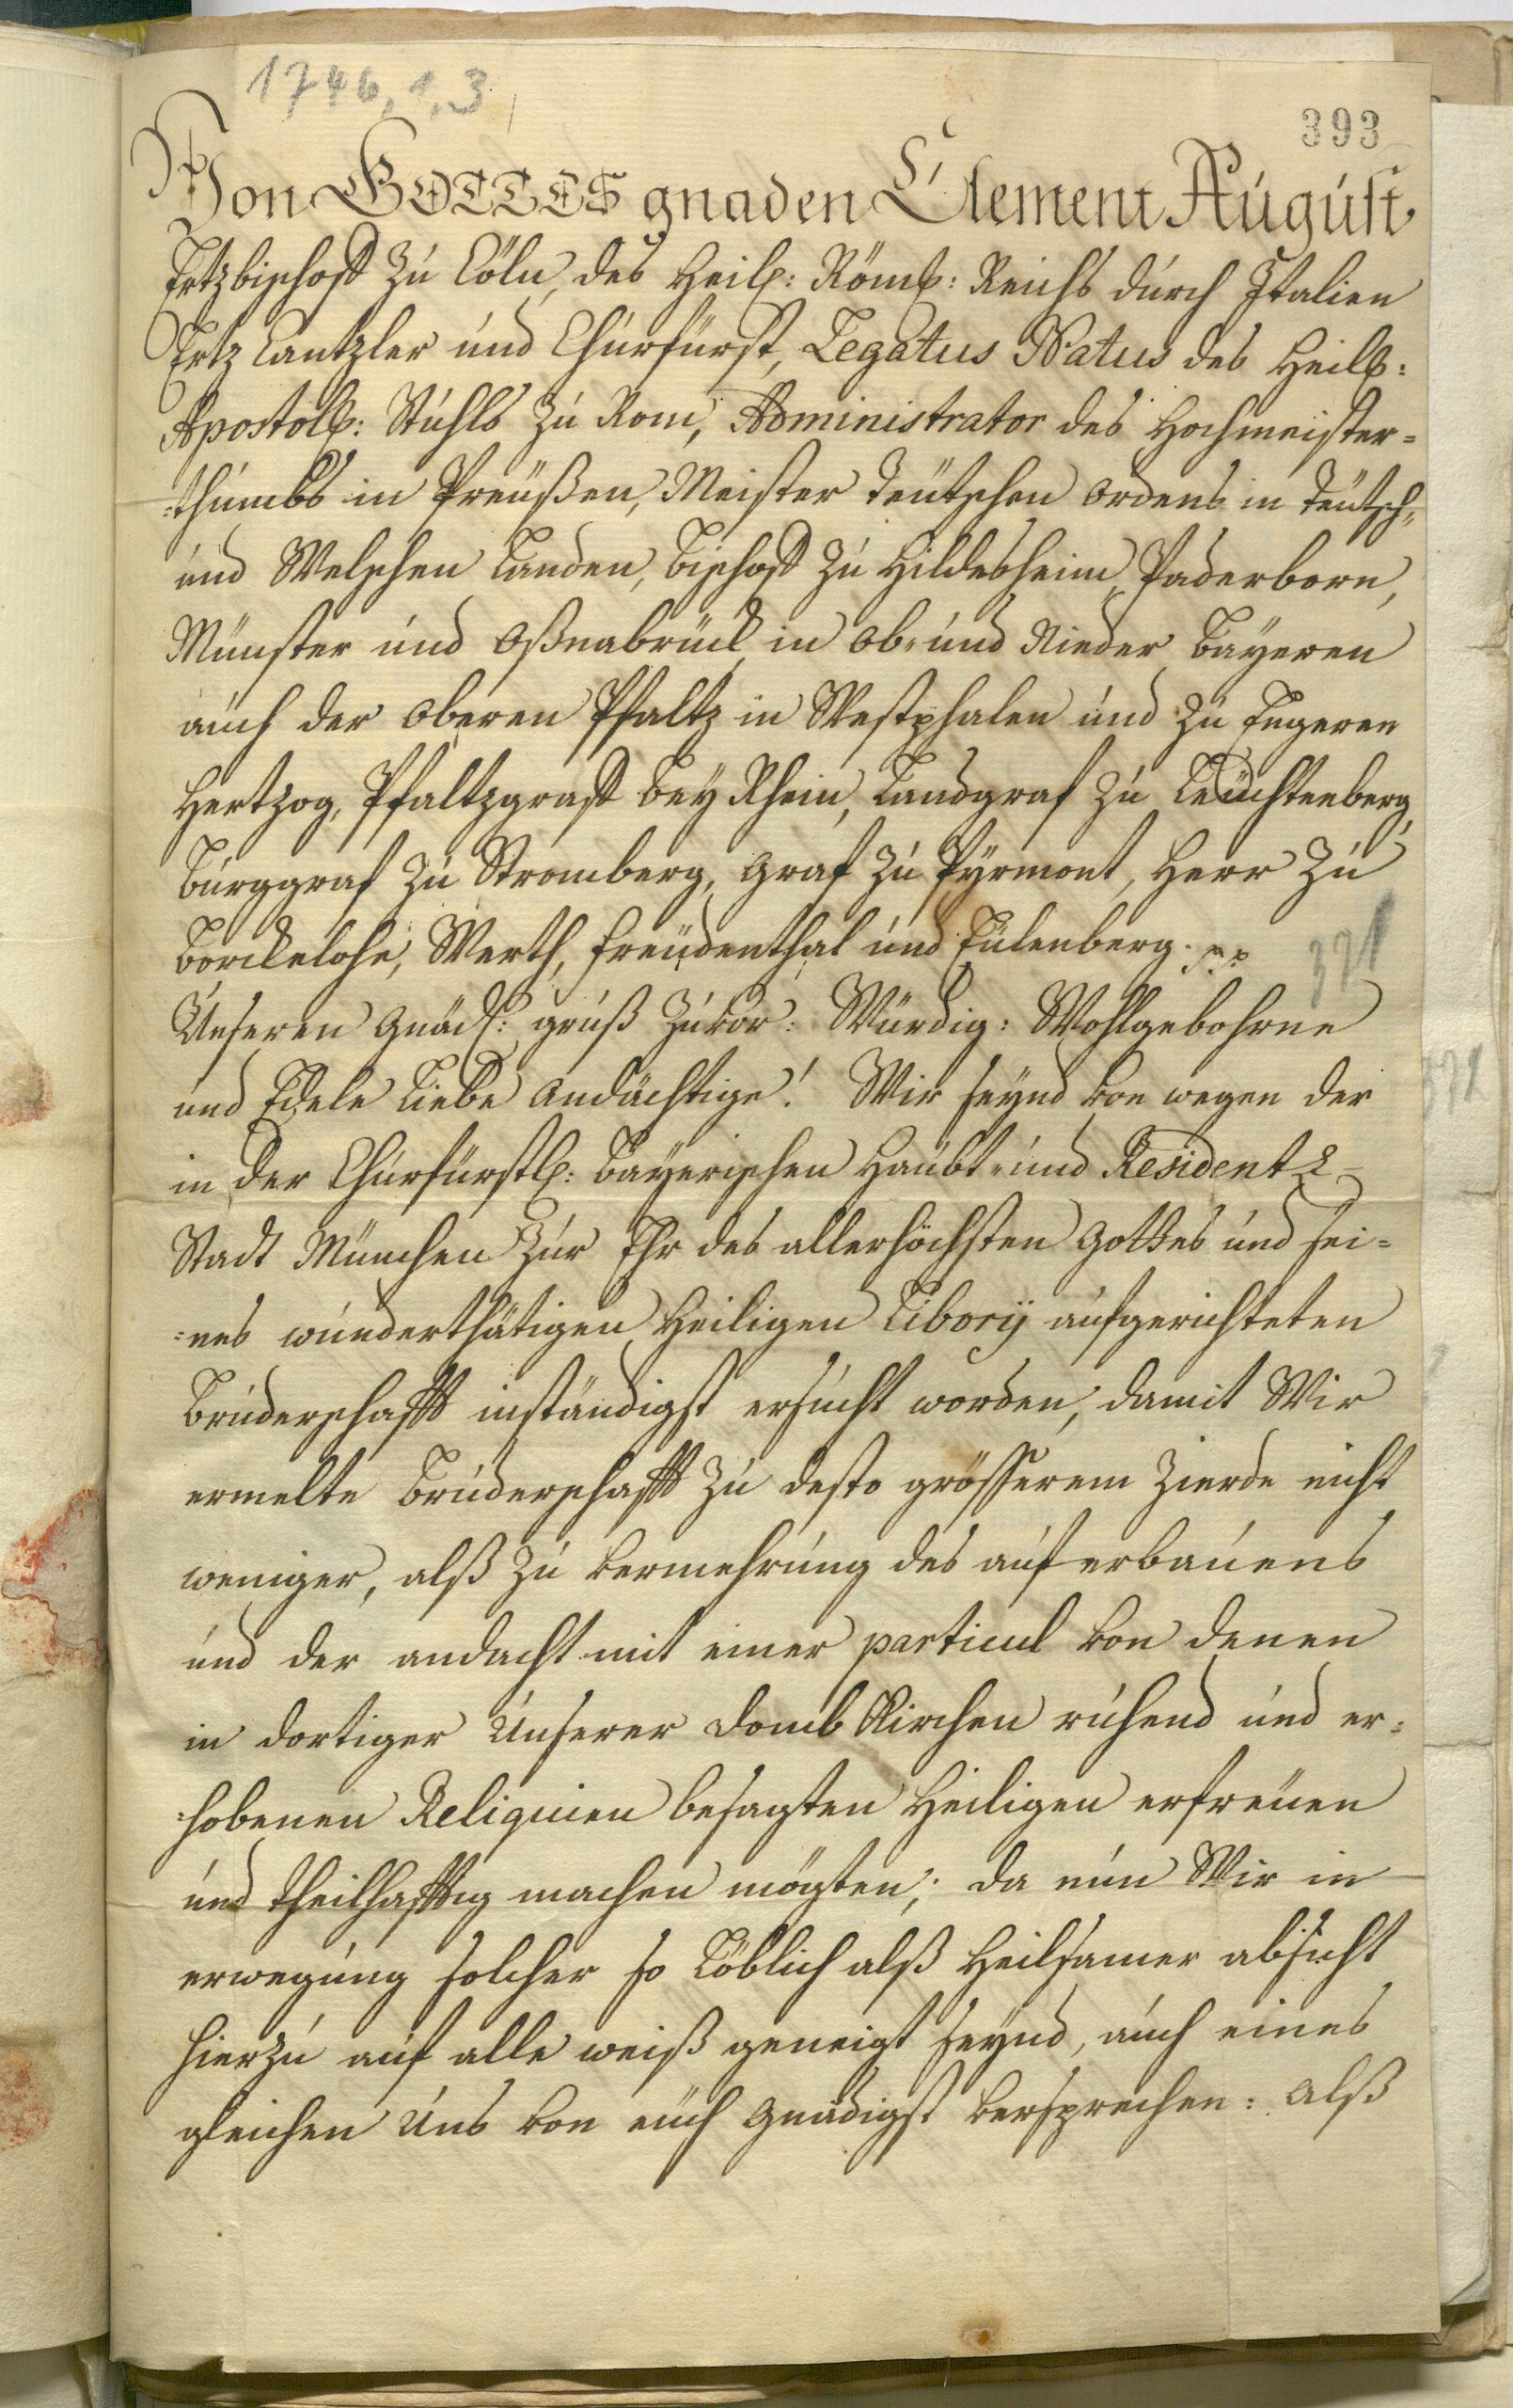 1746, 1, 3
393
Von GOTTES gnaden Clement August
Ertzbischoff zu Cöln, des Heil: Röm: Reichs durch Italien
Ertz Cantzler und Churfürst, Legatus Natus des Heil:
Apostol: Stuhls zu Rom, Administrator des Hochmeister=
=thumbs in Preüßen, Meister Teütschen Ordens in Teütsch=
und Welschen Landen, Bischoff zu Hildesheim, Paderborn,
Münster und Oßnabrück, in Ob= und Nieder Bayeren
auch der Oberen Pfaltz in Westphalen und zu Engeren
Hertzog, Pfaltzgraff bey Rhein, Landgraf zu Leüchtenberg,
Burggraf zu Stromberg, Graf zu Pyrmont, Herr zu
Borckelohe, Werth, Freüdenthal und Eülenberg. pp
321
Unseren Gnäd: gruß zuvor: Würdig: Wohlgebohrne
und Edele Liebe Andächtige! Wir seynd von wegen der
in der Churfürstl: Bayerischen Haubt= und Residentz=
Stadt München zur Ehr des allerhöchsten Gottes und sei=
=nes wunderthätigen Heiligen Liborij aufgerichteten
Bruderschafft inständigst ersucht worden, damit Wir
ermelte Bruderschafft zu desto grösserem Zierde nicht
weniger, alß zu vermehrung des auferbauens
und der andacht mit einer particul von denen
in dortiger Unserer Domb Kirchen ruhend und er=
=hobenen Reliquien besagten Heiligen erfreuen
und theilhafftig machen mögten; da nun Wir in
erwegung solcher so Löblich alß Heilsamer absicht
hierzu auf alle weiß geneigt seynd, auch eines
gleichen Uns von euch Gnädigst versprechen: Alß